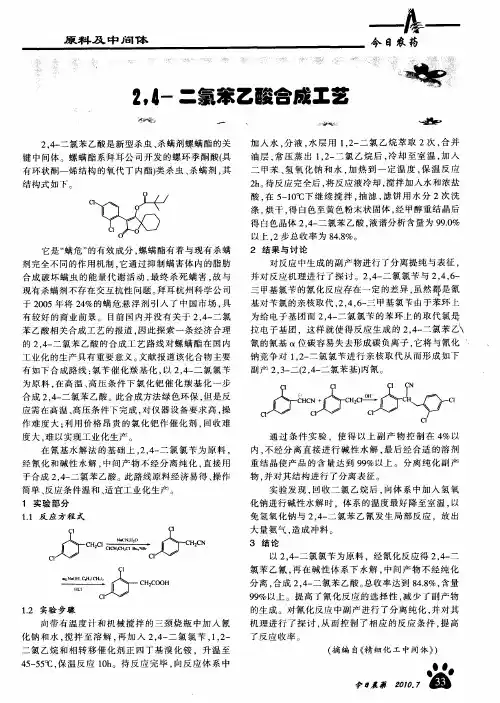 原料及中间体
今日农药
2,4-二氯苯乙酸合成工艺
2,4-二氯苯乙酸是新型杀虫、杀螨剂螺螨酯的关
键中间体。螺螨酯系拜耳公司开发的螺环季酮酸(具
有环状酮—烯结构的氧代丁内酯)类杀虫、杀螨剂,其
结构式如下。
Cl
Cl
O
O
O
O
它是“螨危”的有效成分,螺螨酯有着与现有杀螨
剂完全不同的作用机制,它通过抑制螨害体内的脂肪
合成破坏螨虫的能量代谢活动,最终杀死螨害,故与
现有杀螨剂不存在交互抗性问题。拜耳杭州科学公司
于 2005 年将 24%的螨危悬浮剂引入了中国市场,具
有较好的商业前景。目前国内并没有关于 2,4-二氯
苯乙酸相关合成工艺的报道,因此探索一条经济合理
的 2,4-二氯苯乙酸的合成工艺路线对螺螨酯在国内
工业化的生产具有重要意义。文献报道该化合物主要
有如下合成路线:氯苄催化羰基化,以 2,4-二氯氯苄
为原料,在高温、高压条件下氯化钯催化羰基化一步
合成 2,4-二氯苯乙酸。此合成方法绿色环保,但是反
应需在高温、高压条件下完成,对仪器设备要求高,操
作难度大;利用价格昂贵的氯化钯作催化剂,回收难
度大,难以实现工业化生产。
在氰基水解法的基础上,2,4-二氯氯苄为原料,
经氰化和碱性水解,中间产物不经分离纯化,直接用
于合成 2,4-二氯苯乙酸。此路线原料经济易得、操作
简单、反应条件温和、适宜工业化生产。
1 实验部分
1.1 反应方程式
Cl
Cl
CH₂Cl
NaCN,H₂O
Cl
Cl
CH₂CN
HCl
Cl
Cl
CH₂COOH
1.2 实验步骤
向带有温度计和机械搅拌的三颈烧瓶中加入氰
化钠和水,搅拌至溶解,再加入 2,4-二氯氯苄、1,2-
二氯乙烷和相转移催化剂正四丁基溴化铵。升温至
45-55℃,保温反应 10h。待反应完毕,向反应体系中
加入水,分液,水层用 1,2-二氯乙烷萃取 2 次,合并
油层,常压蒸出 1,2-二氯乙烷后,冷却至室温,加入
二甲苯、氢氧化钠和水,加热到一定温度,保温反应
2h。待反应完全后,将反应液冷却,搅拌加入水和浓盐
酸,在 5-10℃下继续搅拌,抽滤,滤饼用水分 2 次洗
涤,烘干,得白色至黄色粉末状固体,经甲醇重结晶后
得白色晶体 2,4-二氯苯乙酸,液谱分析含量为 99.0%
以上,2 步总收率为 84.8%。
2 结果与讨论
对反应中生成的副产物进行了分离提纯与表征,
并对反应机理进行了探讨。2,4-二氯氯苄与 2,4,6-
三甲基氯苄的氰化反应存在一定的差异,虽然都是氰
基对苄氯的亲核取代,2,4,6-三甲基氯苄由于苯环上
为给电子基团而 2,4-二氯氯苄的苯环上的取代氯是
拉电子基团,这样就使得反应生成的 2,4-二氯苯乙
氰的氰基 α 位碳容易失去形成碳负离子,它将与氰化
钠竞争对 1,2-二氯氯苄进行亲核取代从而形成如下
副产 2,3-二(2,4-二氯苯基)丙氰。
通过条件实验,使得以上副产物控制在 4%以
内,不经分离直接进行碱性水解,最后经合适的溶剂
重结晶使产品的含量达到 99%以上。分离纯化副产
物,并对其结构进行了分离表征。
实验发现,回收二氯乙烷后,向体系中加入氢氧
化钠进行碱性水解时,体系的温度最好降至室温,以
免氢氧化钠与 2,4-二氯苯乙氰发生局部反应,放出
大量氨气,造成冲料。
3 结论
以 2,4-二氯氯苄为原料,经氰化反应得 2,4-二
氯苯乙氰,再在碱性体系下水解,中间产物不经纯化
分离,合成 2,4-二氯苯乙酸。总收率达到 84.8%,含量
99%以上。提高了氰化反应的选择性,减少了副产物
的生成。对氰化反应中副产进行了分离纯化,并对其
机理进行了探讨,从而控制了相应的反应条件,提高
了反应收率。
(摘编自《精细化工中间体》)
今日农药 2010.7 33